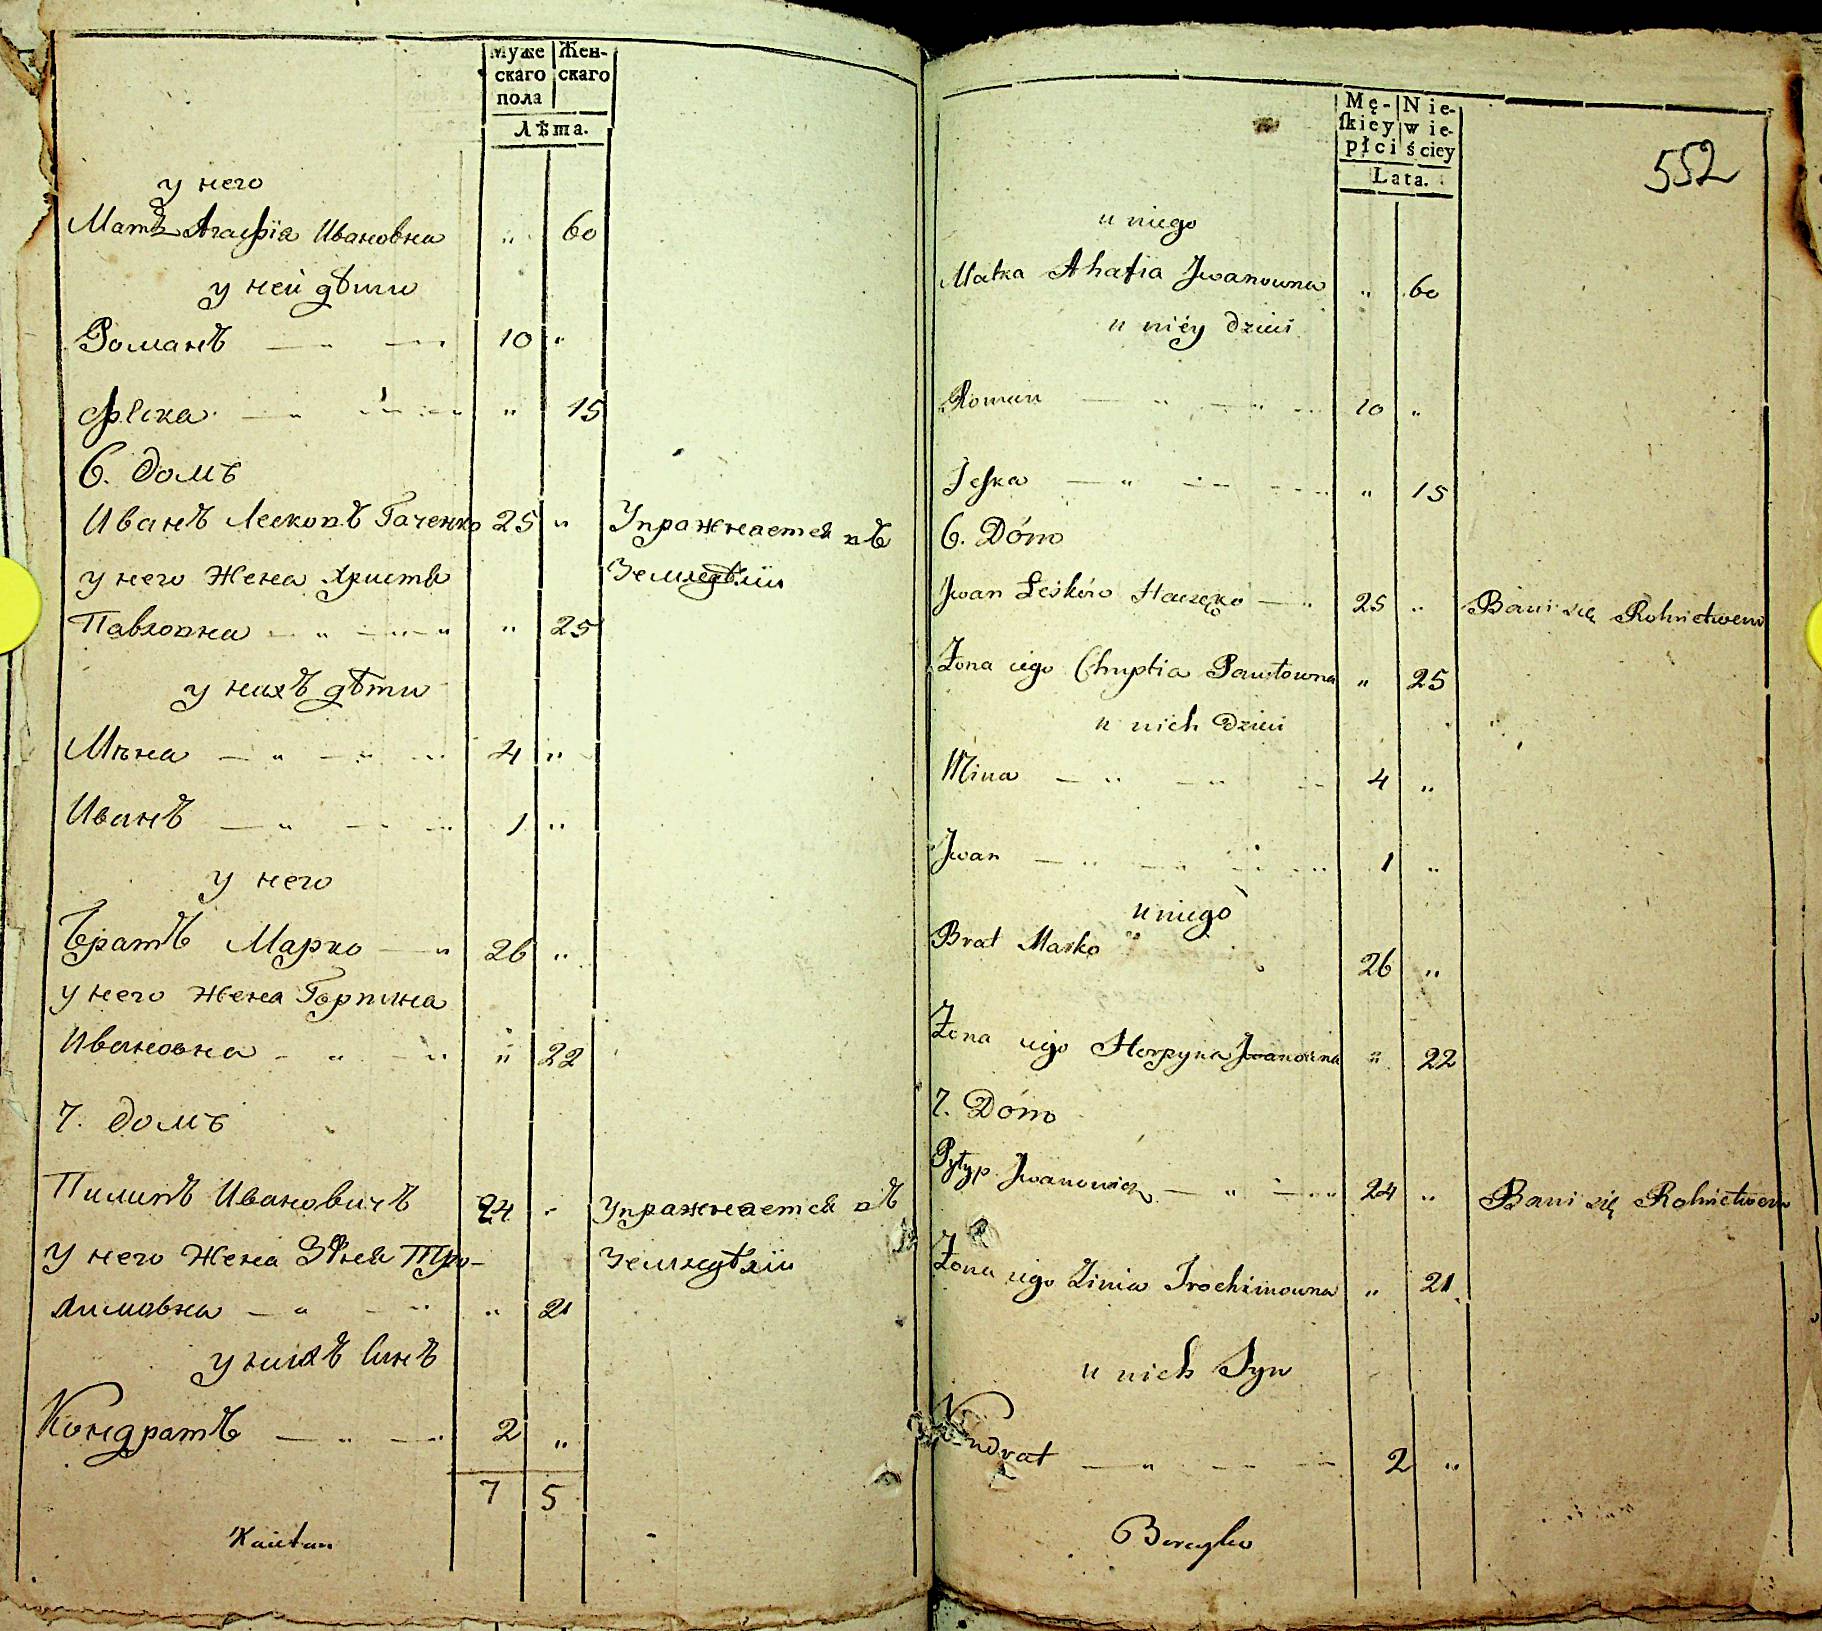 Муже Жен-
скаго скаго
пола
Лѣта.
у него
Матъ Агафія Ивановна " 60
у ней дѣти
Романъ — " — " 10 "
Феска — " — " " 15
6. домъ
Иванъ Лесковъ Гаченко 25 " Упражнается въ
у него Жена Христя Земледѣліи
Павловна — " — " " 25
у нихъ дѣти
Мѣна — " — " 4 "
Иванъ — " — " 1 "
у него
Братъ Марко — " 26 "
у него Жена Горпина
Ивановна — " — " " 22
7. домъ
Пилипъ Ивановичъ 24 " Упражнается въ
у него Жена Зѣня Тро- Земледѣліи
химовна — " — " " 21
у нихъ Синъ
Кондратъ — " — " 2 "
7 5
Kaietan
Mę- Nie-
ſkiey wie-
płci ściey
Lata.
552
u niego
Matka Ahafia Jwanowna " 60
u niéy dzieci
Roman — " — " 10 "
Feſka — " — " " 15
6. Dóm
Jwan Leśków Haczęko — " 25 " Bawi się Rolnictwem
Żona iego Chryſtia Pawłowna " 25
u nich Dzieci
Mina — " — " 4 "
Jwan — " — " 1 "
u niego
Brat Marko " 26 "
Żona iego Horpyna Jwanowna " 22
7. Dóm
Pyłyp Jwanowicz — " — " 24 " Bawi się Rolnictwem
Żona iego Zinia Trochimowna " 21
u nich Syn
Kondrat — " — " 2 "